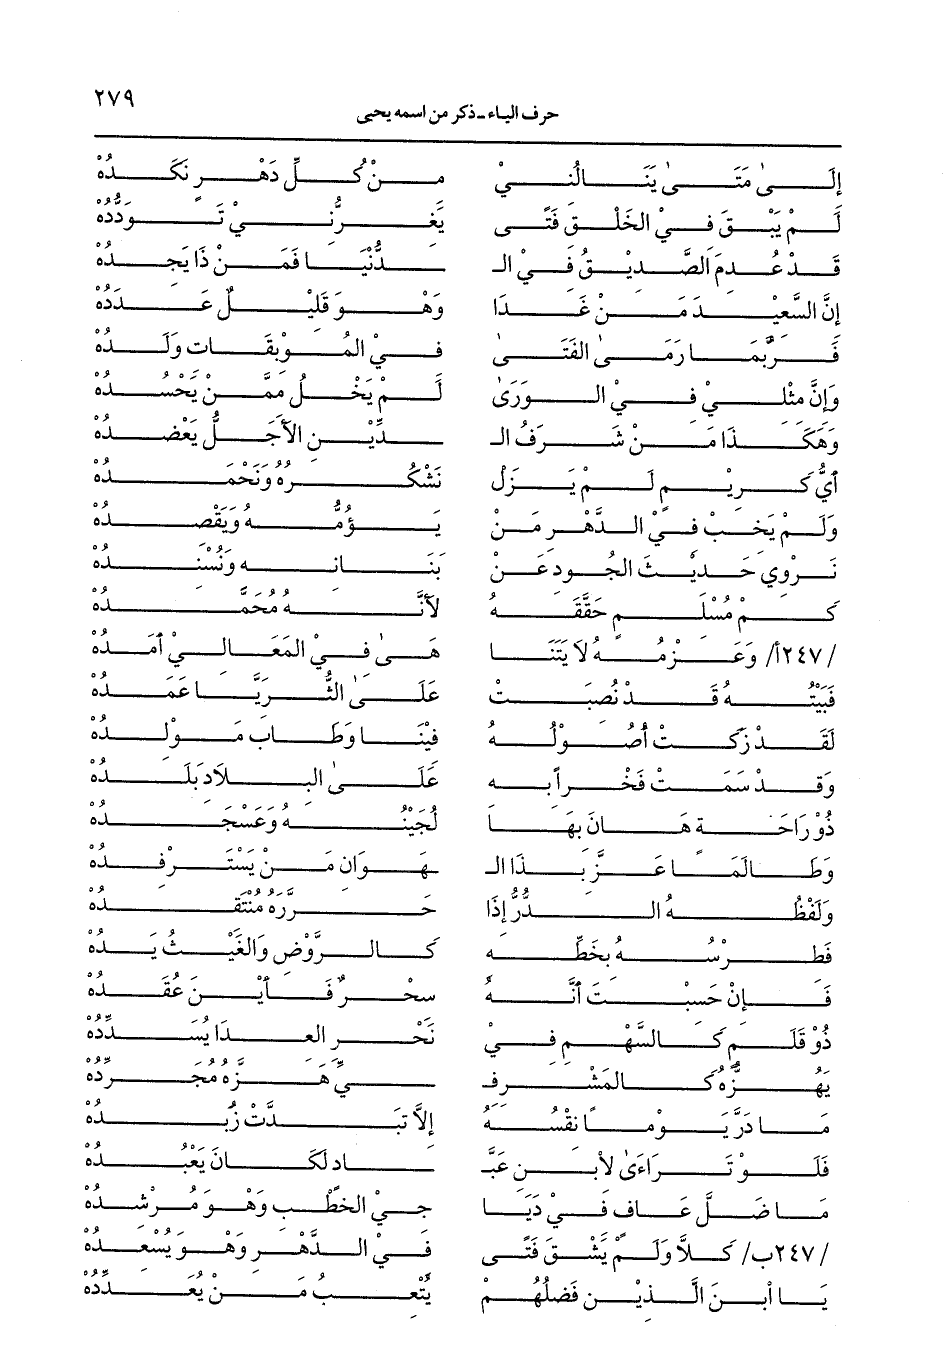 ٢٧٩
حرف الياء ـ ذكر من اسمه يحيى
إلَىٰ مَتَىٰ يَنَالُنيْ مِنْ كُلِّ دَهْرٍ نَكَدُهْ
لَمْ يَبْقَ فيْ الخَلْقِ فَتًى يَغرُّنيْ تَوَدُّدُهْ
قَدْ عُدِمَ الصَّديْقُ فيْ الـ ـدُّنْيَا فَمَنْ ذَا يَجِدُهْ
إنَّ السَّعيْدَ مَنْ غَدَا وَهْوَ قَليْلٌ عَدَدُهْ
فَرُبَّمَا رَمَىٰ الفَتَىٰ فيْ المُوْبِقَاتِ وَلَدُهْ
وَإنَّ مثْليْ فيْ الوَرَىٰ لَمْ يَخْلُ ممَّنْ يَحْسُدُهْ
وَهَكَذَا مَنْ شَرَفُ الـ ـدِّيْنِ الأَجَلُّ يَعْضُدُهْ
أيُّ كَريْمٍ لَمْ يَزَلْ نَشْكُرُهُ وَنَحْمَدُهْ
وَلَمْ يَخبْ فيْ الدَّهْرِ مَنْ يَؤُمُّهُ وَيَقْصدُهْ
نَرْوِي حَديْثَ الجُودِ عَنْ بَنَانِه وَنُسْنِدُهْ
كَمْ مُسْلِمٍ حَقَّقَهُ لأَنَّهُ مُحَمَّدُهْ
/٢٤٧أ/ وَعَزْمُهُ لاَ يَتَنَا هَىٰ فيْ المَعَاليْ أمَدُهْ
فَبَيْتُهُ قَدْ نُصِبَتْ عَلَىٰ الثُّرَيَّا عَمَدُهْ
لَقَدْ زَكَتْ أُصُوْلُهُ فيْنَا وَطَابَ مَوْلدُهْ
وَقَدْ سَمَتْ فَخْراً بِه عَلَىٰ البِلاَدِ بَلَدُهْ
ذُوْ رَاحَةٍ هَانَ بِهَا لُجَيْنُهُ وَعَسْجَدُهْ
وَطَالَمَا عَزَّ بِذَا الـ ـهَوَانِ مَنْ يَسْتَرْفدُهْ
وَلَفْظُهُ الدُّرُّ إذَا حَرَّرَهُ مُنْتَقدُهْ
فَطِرْسُهُ بِخَطِّه كَالرَّوْضِ وَالغَيْثُ يَدُهْ
فَإنْ حَسِبْتَ أنَّهُ سحْرٌ فَأيْنَ عُقَدُهْ
ذُوْ قَلَمٍ كَالسَّهْمِ فيْ نَحْرِ العدَا يُسَدِّدُهْ
يَهُزُّهُ كَالمَشْرفـ ـيِّ هَزَّهُ مُجَرِّدُهْ
مَا دَرَّ يَوْماً نِقْسُهُ إلاَّ تَبَدَّتْ زُبَدُهْ
فَلَوْ تَرَاءَىٰ لأبْنِ عَبَّـ ـادٍ لَكَانَ يَعْبُدُهْ
مَا ضَلَّ عَافٍ فيْ دَيَا جيْ الخَطْبِ وَهْوَ مُرْشدُهْ
/٢٤٧ب/ كَلاَّ وَلَمْ يَشْقَ فَتًى فيْ الدَّهْرِ وَهْوَ يُسْعدُهْ
يَا أبنَ الَّذيْنَ فَضْلُهُمْ يُتْعبُ مَنْ يُعَدِّدُهْ